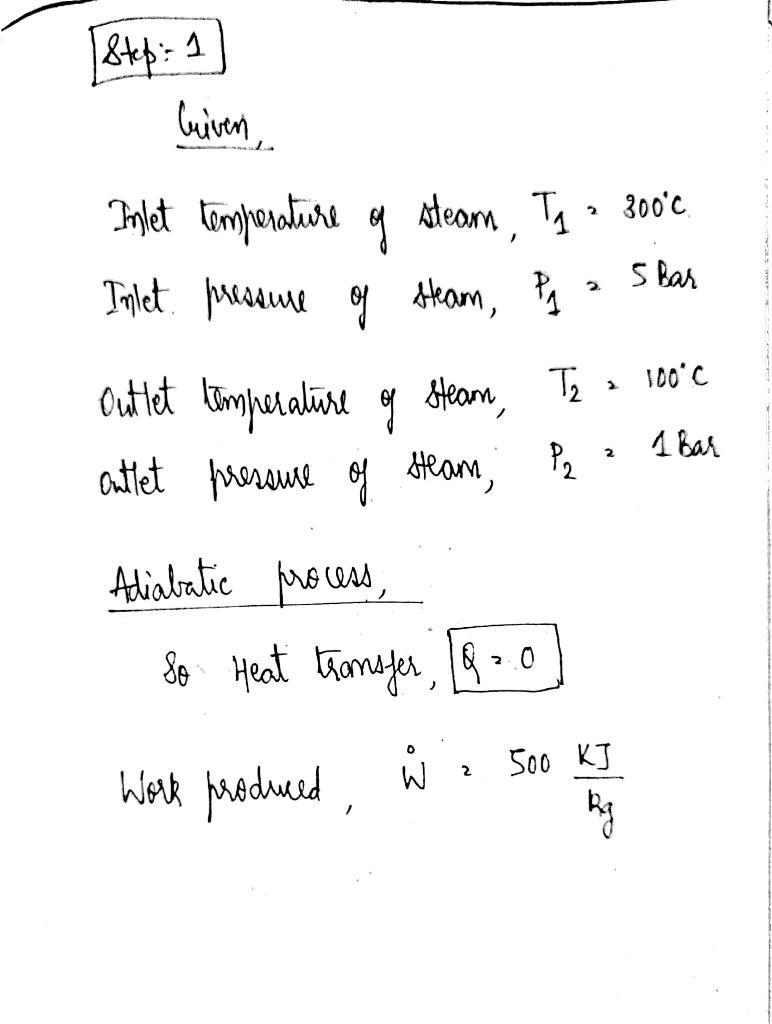 Step:- 1
Given,
Inlet temperature of steam, T₁ = 300°C
Inlet pressure of steam, P₁ = 5 Bar
Outlet temperature of steam, T₂ = 100°C
Outlet pressure of steam, P₂ = 1 Bar
Adiabatic process,
So Heat transfer, Q = 0
Work produced, Ẇ = 500 KJ/kg